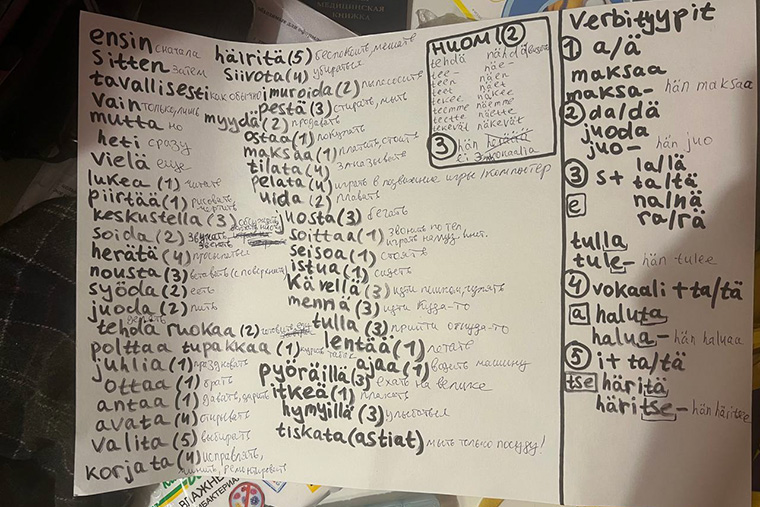 МЕДИЦИНСКАЯ
КНИЖКА
ensin сначала
sitten затем
tavallisesti как обычно
vain только, лишь
mutta но
heti сразу
vielä еще
lukea (1) читать
piirtää (1) рисовать, чертить
keskustella (3) обсуждать
soida (2) звучать, звенеть
herätä (4) просыпаться
nousta (3) вставать (с поверхн.)
syödä (2) есть
juoda (2) пить
tehdä ruokaa (2) готовить еду
polttaa tupakkaa (1) курить табак
juhlia (1) праздновать
ottaa (1) брать
antaa (1) давать, дарить
avata (4) открывать
valita (5) выбирать
korjata (4) исправлять,
чинить, ремонтировать
häiritä (5) беспокоить, мешать
siivota (4) убираться
imuroida (2) пылесосить
pestä (3) стирать, мыть
myydä (2) продавать
ostaa (1) покупать
maksaa (1) платить, стоить
tilata (4) заказывать
pelata (4) играть в подвижные игры/компьютер
uida (2) плавать
juosta (3) бегать
isoittaa (1) звонить по тел
играть на муз. инст.
seisoa (1) стоять
istua (1) сидеть
kävellä (3) идти пешком, гулять
mennä (3) идти куда-то
tulla (3) прийти откуда-то
lentää (1) летать
ajaa (1) водить машину
pyöräillä (3) ехать на велике
itkeä (1) плакать
hymyillä (3) улыбаться
tiskata (astiat) мыть только посуду!
HUOM! (2)
tehdä nähdä
tee- näe-
teen näen
teet näet
tekee näkee
teemme näemme
teette näette
tekevät näkevät
(3) hän
ei 3 vokaalia
Verbityypit
(1) a/ä
maksaa
maksa- hän maksaa
(2) da/dä
juoda
juo- hän juo
la/lä
(3) s+ ta/tä
e na/nä
ra/rä
tulla
tule- hän tulee
(4) vokaali + ta/tä
a haluta
halua- hän haluaa
(5) i + ta/tä
tse häritä
häritse- hän häritsee